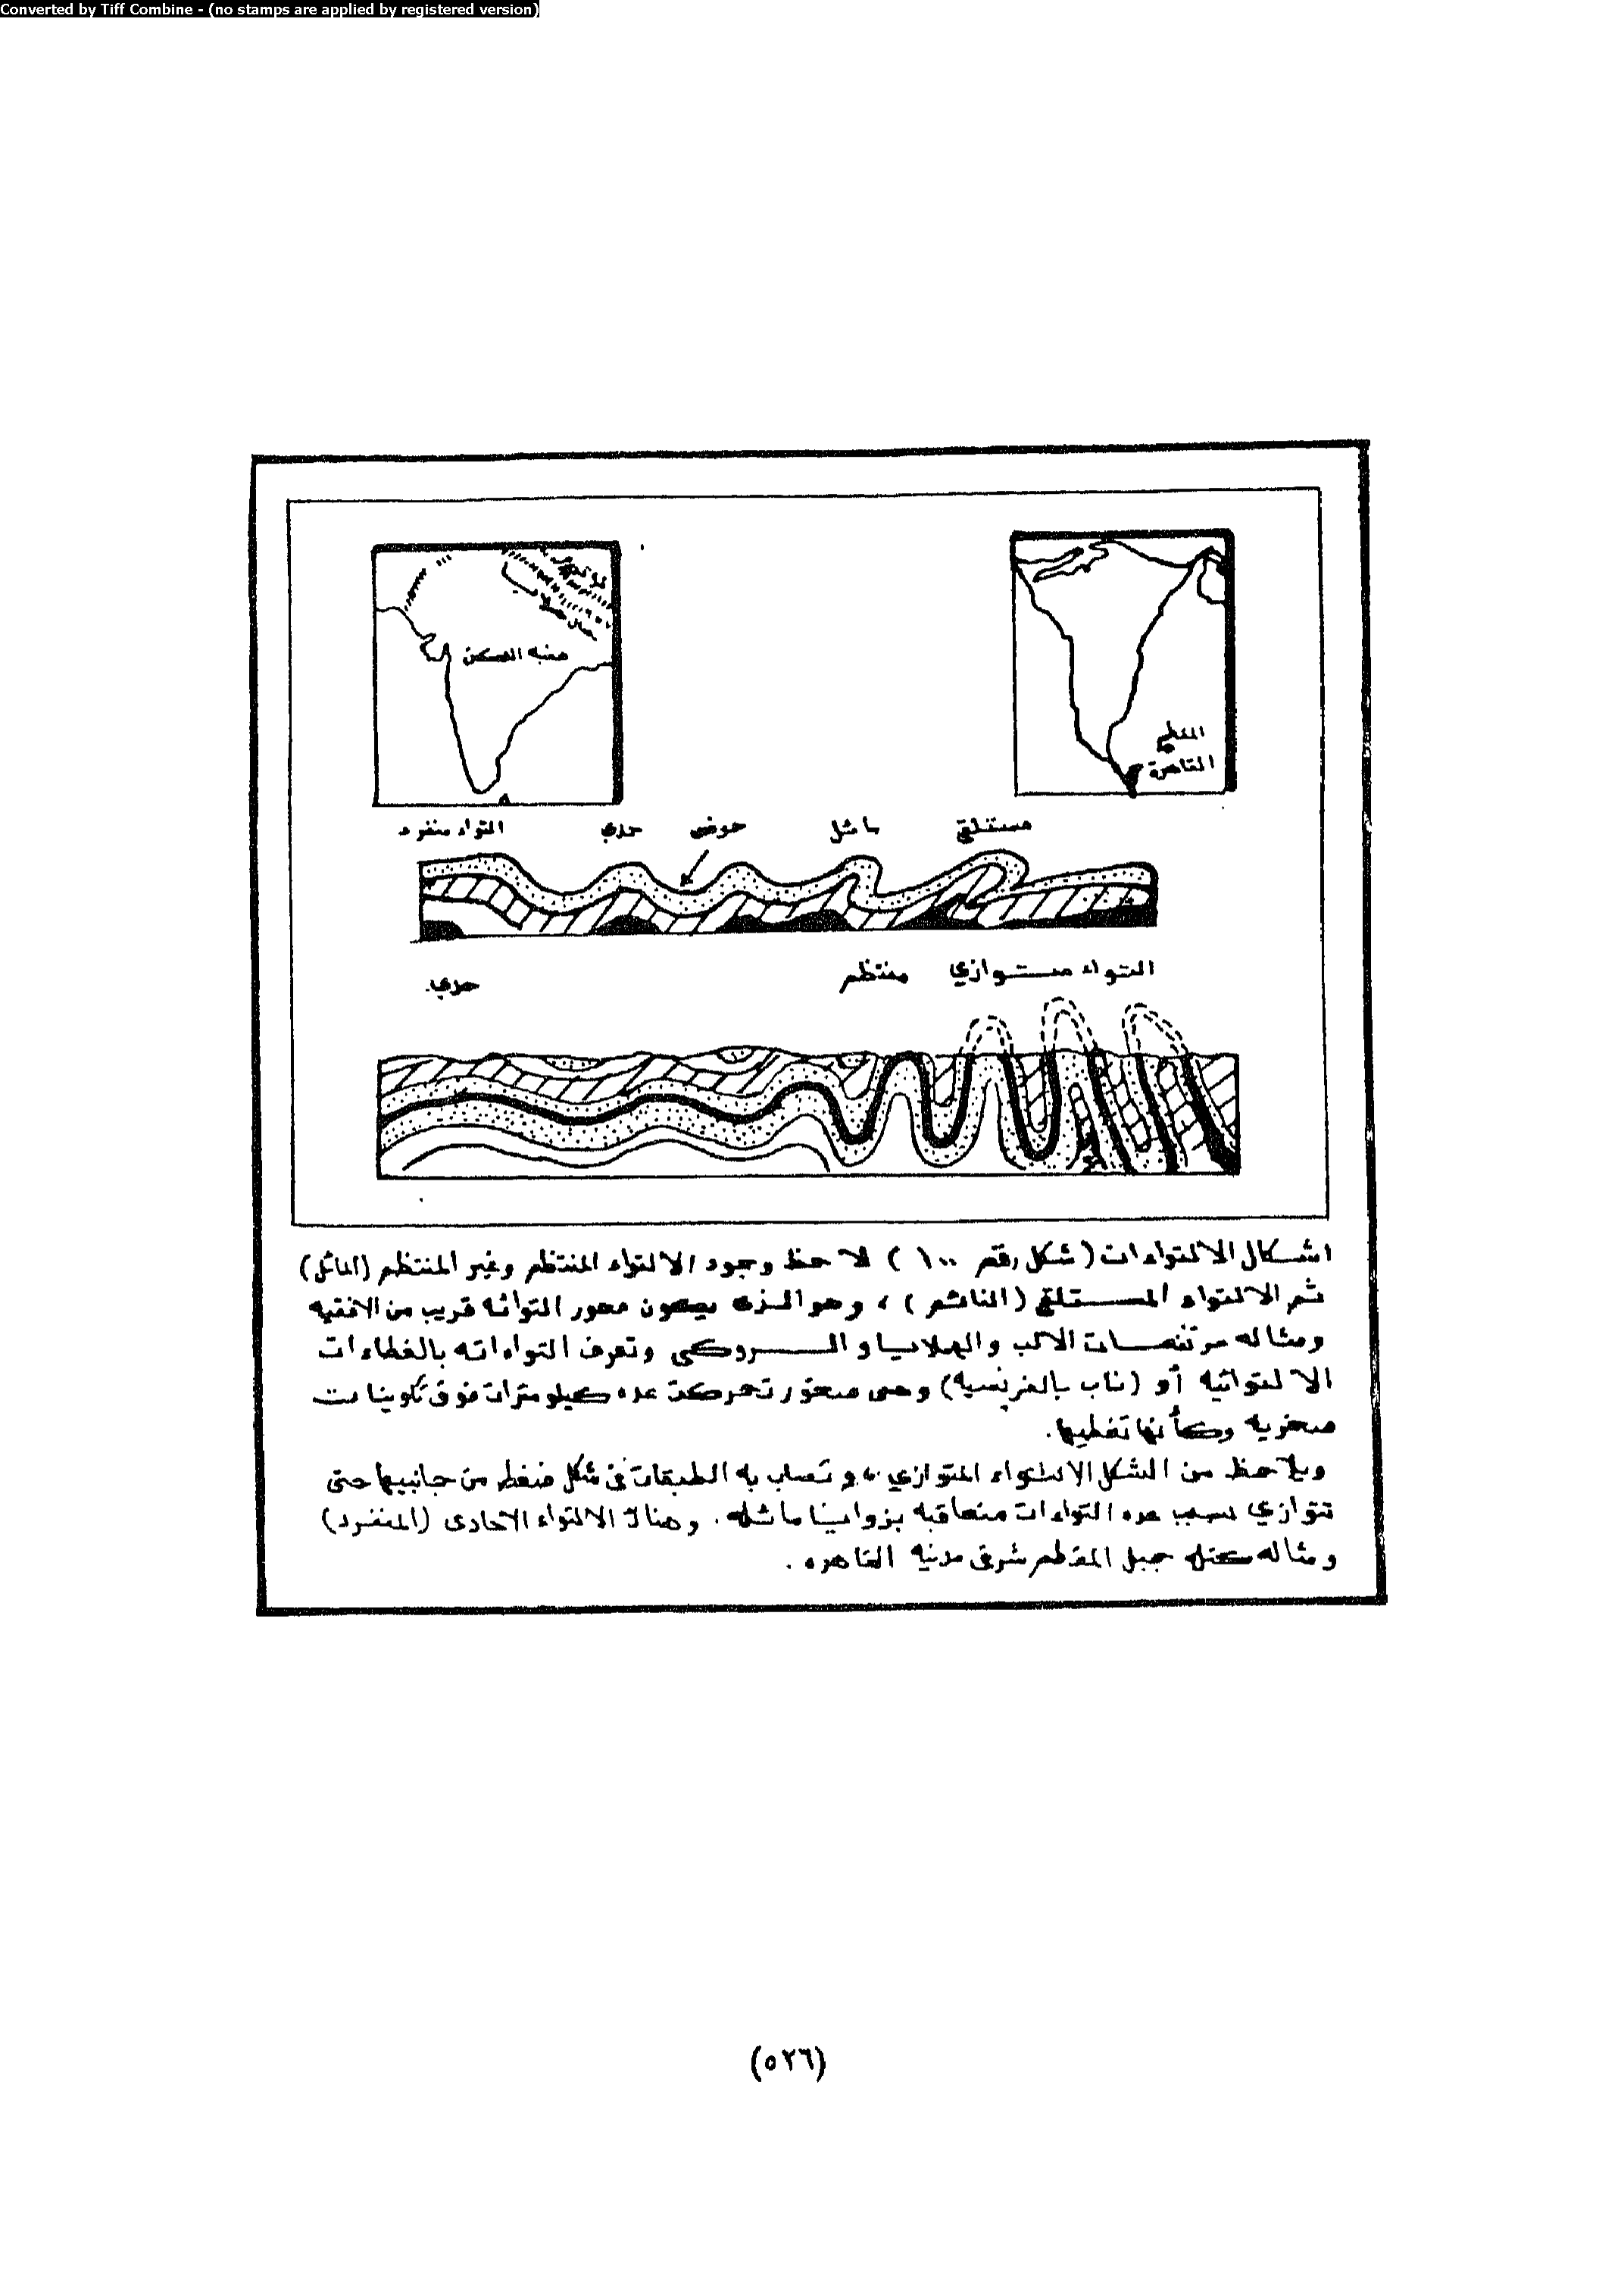 Converted by Tiff Combine - (no stamps are applied by registered version)
هضبه الدكن
المقطم
القاهرة
التواء منفرد
حدبي
حوضى
مائل
مستلقي
التواء متوازي
منتظم
حدبي
اشكال الالتواءات (شكل رقم ١٠٠) لاحظ وجود الالتواء المنتظم وغير المنتظم (المائل)
ثم الالتواء المستلقي (النائم) ، وهو الذى يكون محور التوائه قريب من الافقيه
ومثاله مرتفعات الالب والهملايا والروكى وتعرف التواءاته بالغطاءات
الالتوائيه أو (ناب بالفرنسيه) وهى صخور تحركت عده كيلو مترات فوق تكوينات
صخريه وكأنها تغطيها.
ويلاحظ من الشكل الالتواء المتوازي ، وتصاب به الطبقات فى شكل ضغط من جانبيها حتى
تتوازي بسبب هذه التواءات متعاقبه بزوايا مائله. وهناك الالتواء الاحادى (المنفرد)
ومثاله كتله جبل المقطم شرق مدينه القاهره .
(٥٢٦)